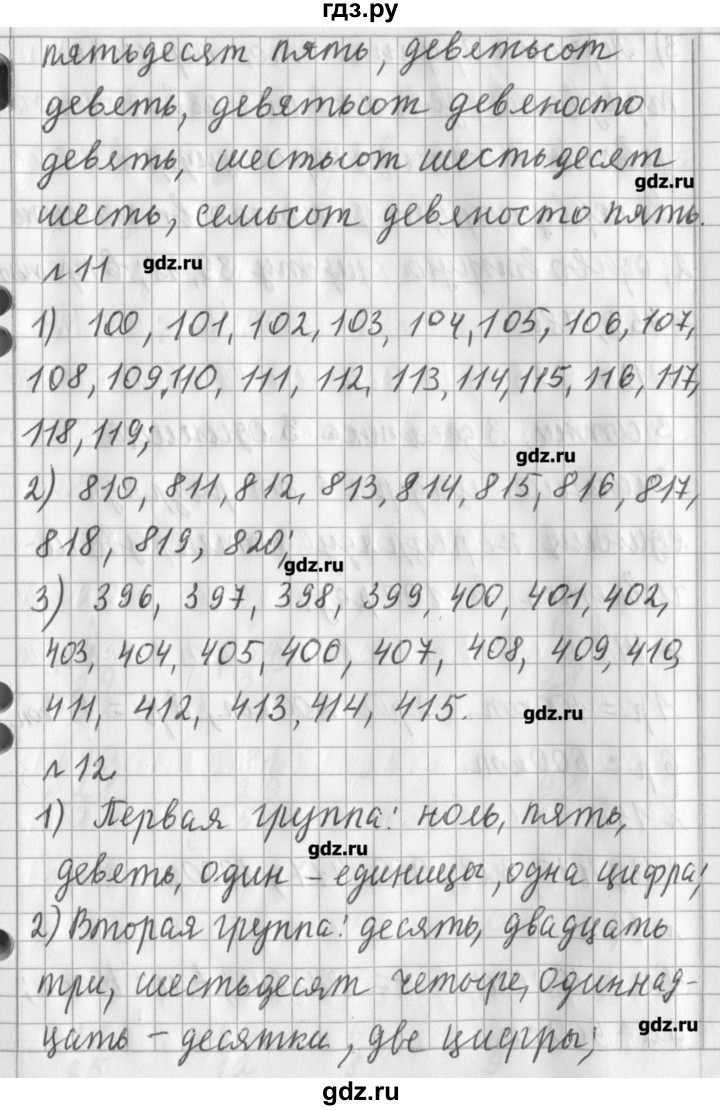 гдз.ру
пятьдесят пять, девятьсот
девять, девятьсот девяносто
девять, шестьсот шестьдесят
gdz.ru
шесть, семьсот девяносто пять.
№11
gdz.ru
1) 100, 101, 102, 103, 104, 105, 106, 107,
108, 109, 110, 111, 112, 113, 114, 115, 116, 117,
118, 119;
gdz.ru
2) 810, 811, 812, 813, 814, 815, 816, 817,
818, 819, 820;
gdz.ru
3) 396, 397, 398, 399, 400, 401, 402,
403, 404, 405, 406, 407, 408, 409, 410,
411, 412, 413, 414, 415.
gdz.ru
№12.
1) Первая группа: ноль, пять,
gdz.ru
девять, один – единицы, одна цифра;
2) Вторая группа: десять, двадцать
три, шестьдесят четыре, одиннад-
цать – десятки, две цифры;
gdz.ru
gdz.ru